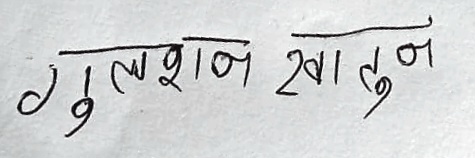 गुलशन खातुन